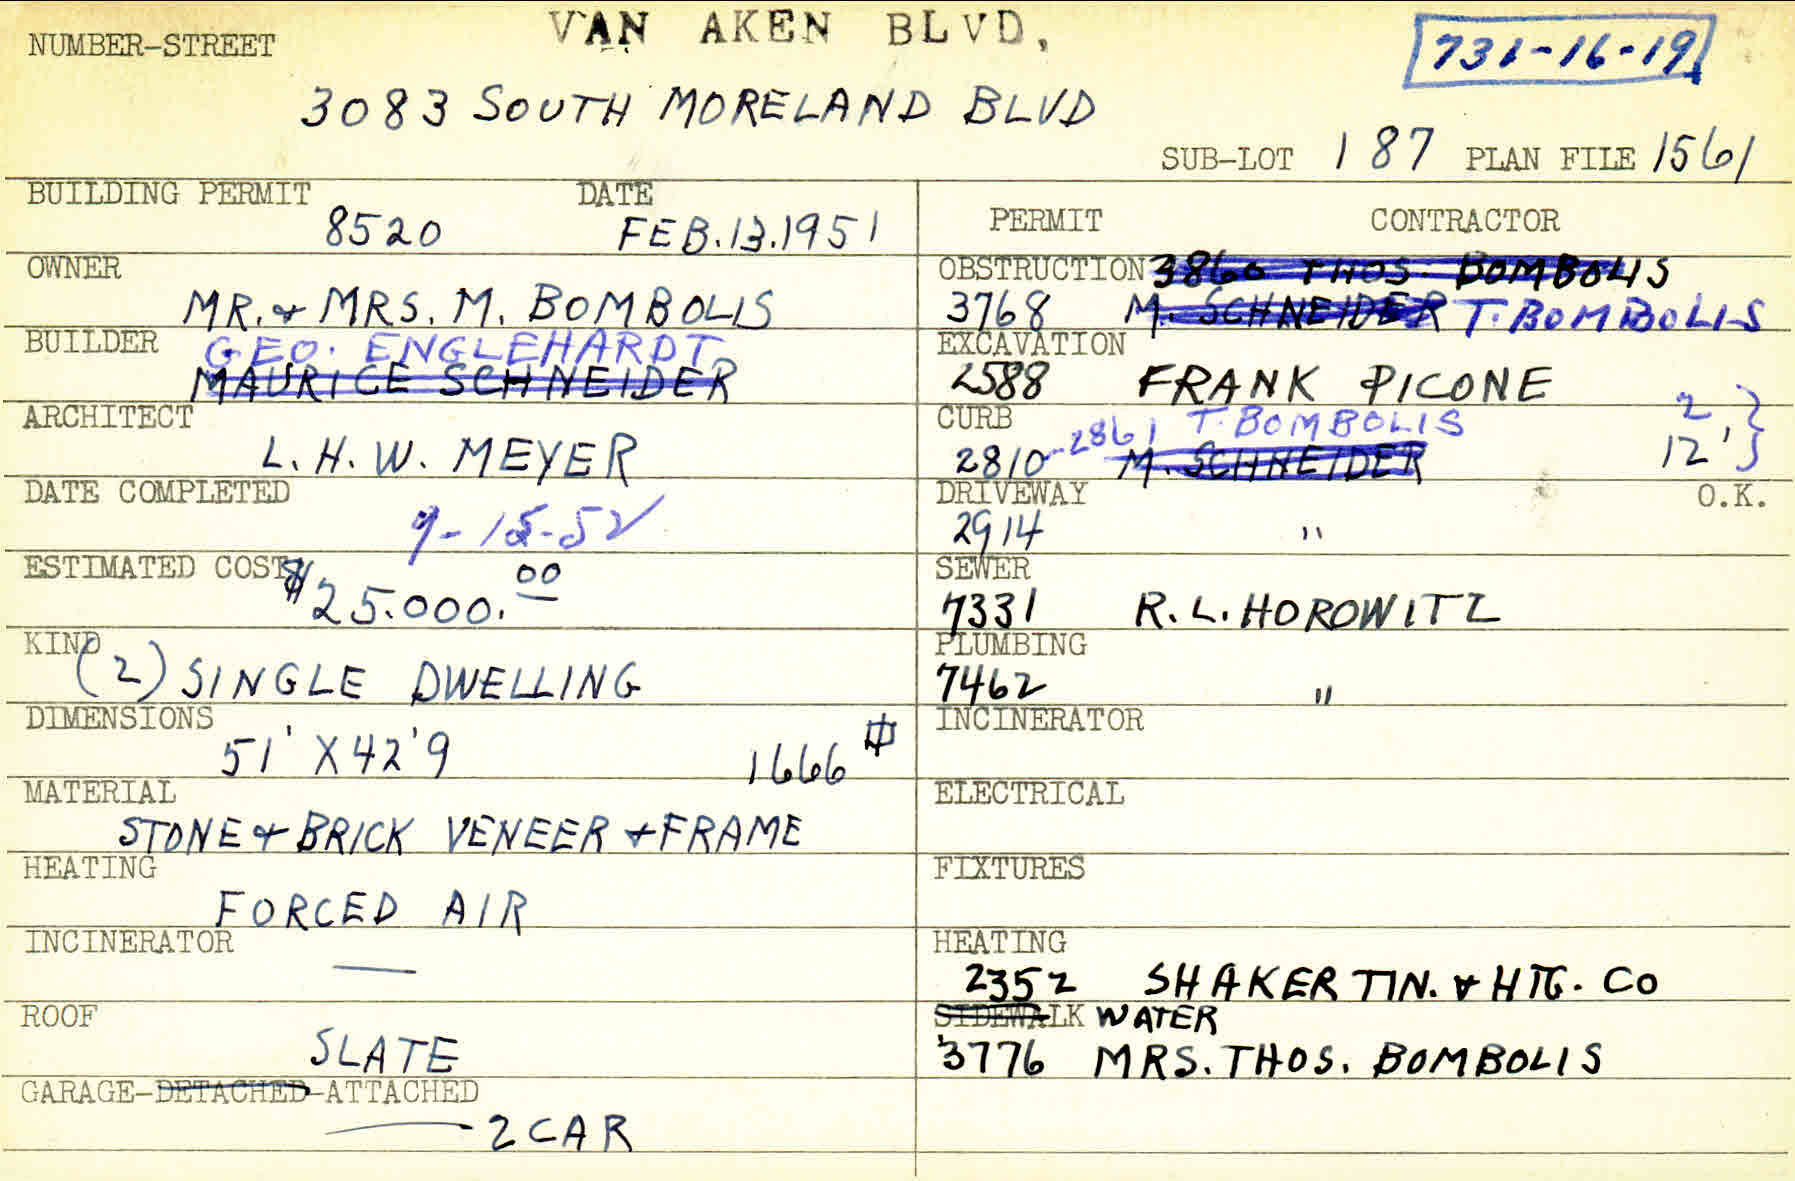 VAN AKEN BLVD.
NUMBER-STREET
731-16-19
3083 SOUTH MORELAND BLVD
SUB-LOT 187 PLAN FILE 1561
BUILDING PERMIT DATE
8520 FEB.13.1951
OWNER
MR. & MRS. M. BOMBOLIS
BUILDER GEO. ENGLEHARDT
MAURICE SCHNEIDER
ARCHITECT
L. H. W. MEYER
DATE COMPLETED
9-15-52
ESTIMATED COST
$25.000.00
KIND
(2) SINGLE DWELLING
DIMENSIONS
51' X 42'9 1666
MATERIAL
STONE & BRICK VENEER & FRAME
HEATING
FORCED AIR
INCINERATOR
—
ROOF
SLATE
GARAGE-DETACHED-ATTACHED
2 CAR
PERMIT CONTRACTOR
OBSTRUCTION 3860 THOS. BOMBOLIS
3768 M. SCHNEIDER T. BOMBOLIS
EXCAVATION
2588 FRANK PICONE
CURB 2861 T. BOMBOLIS 2
2810 M. SCHNEIDER 12'
DRIVEWAY O.K.
2914 "
SEWER
7331 R. L. HOROWITZ
PLUMBING
7462 "
INCINERATOR
ELECTRICAL
FIXTURES
HEATING
2352 SHAKER TIN. & HTG. CO
SIDEWALK WATER
3776 MRS. THOS. BOMBOLIS